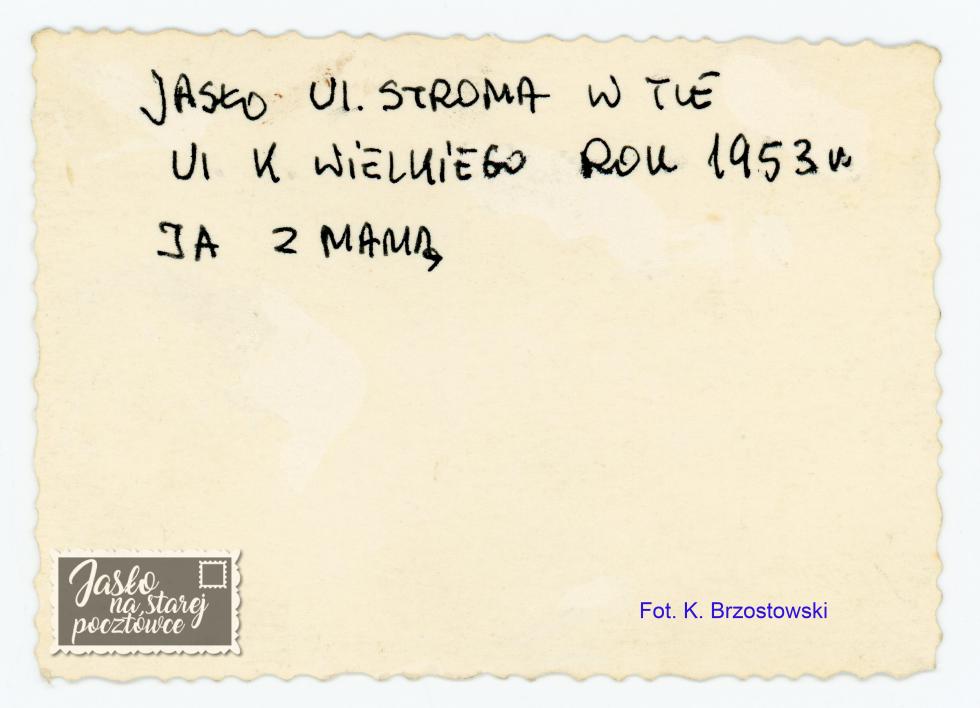 JASŁO UL. STROMA W TLE
UL K WIELKIEGO ROK 1953 r
JA Z MAMĄ
Jasło
na starej
pocztówce
Fot. K. Brzostowski